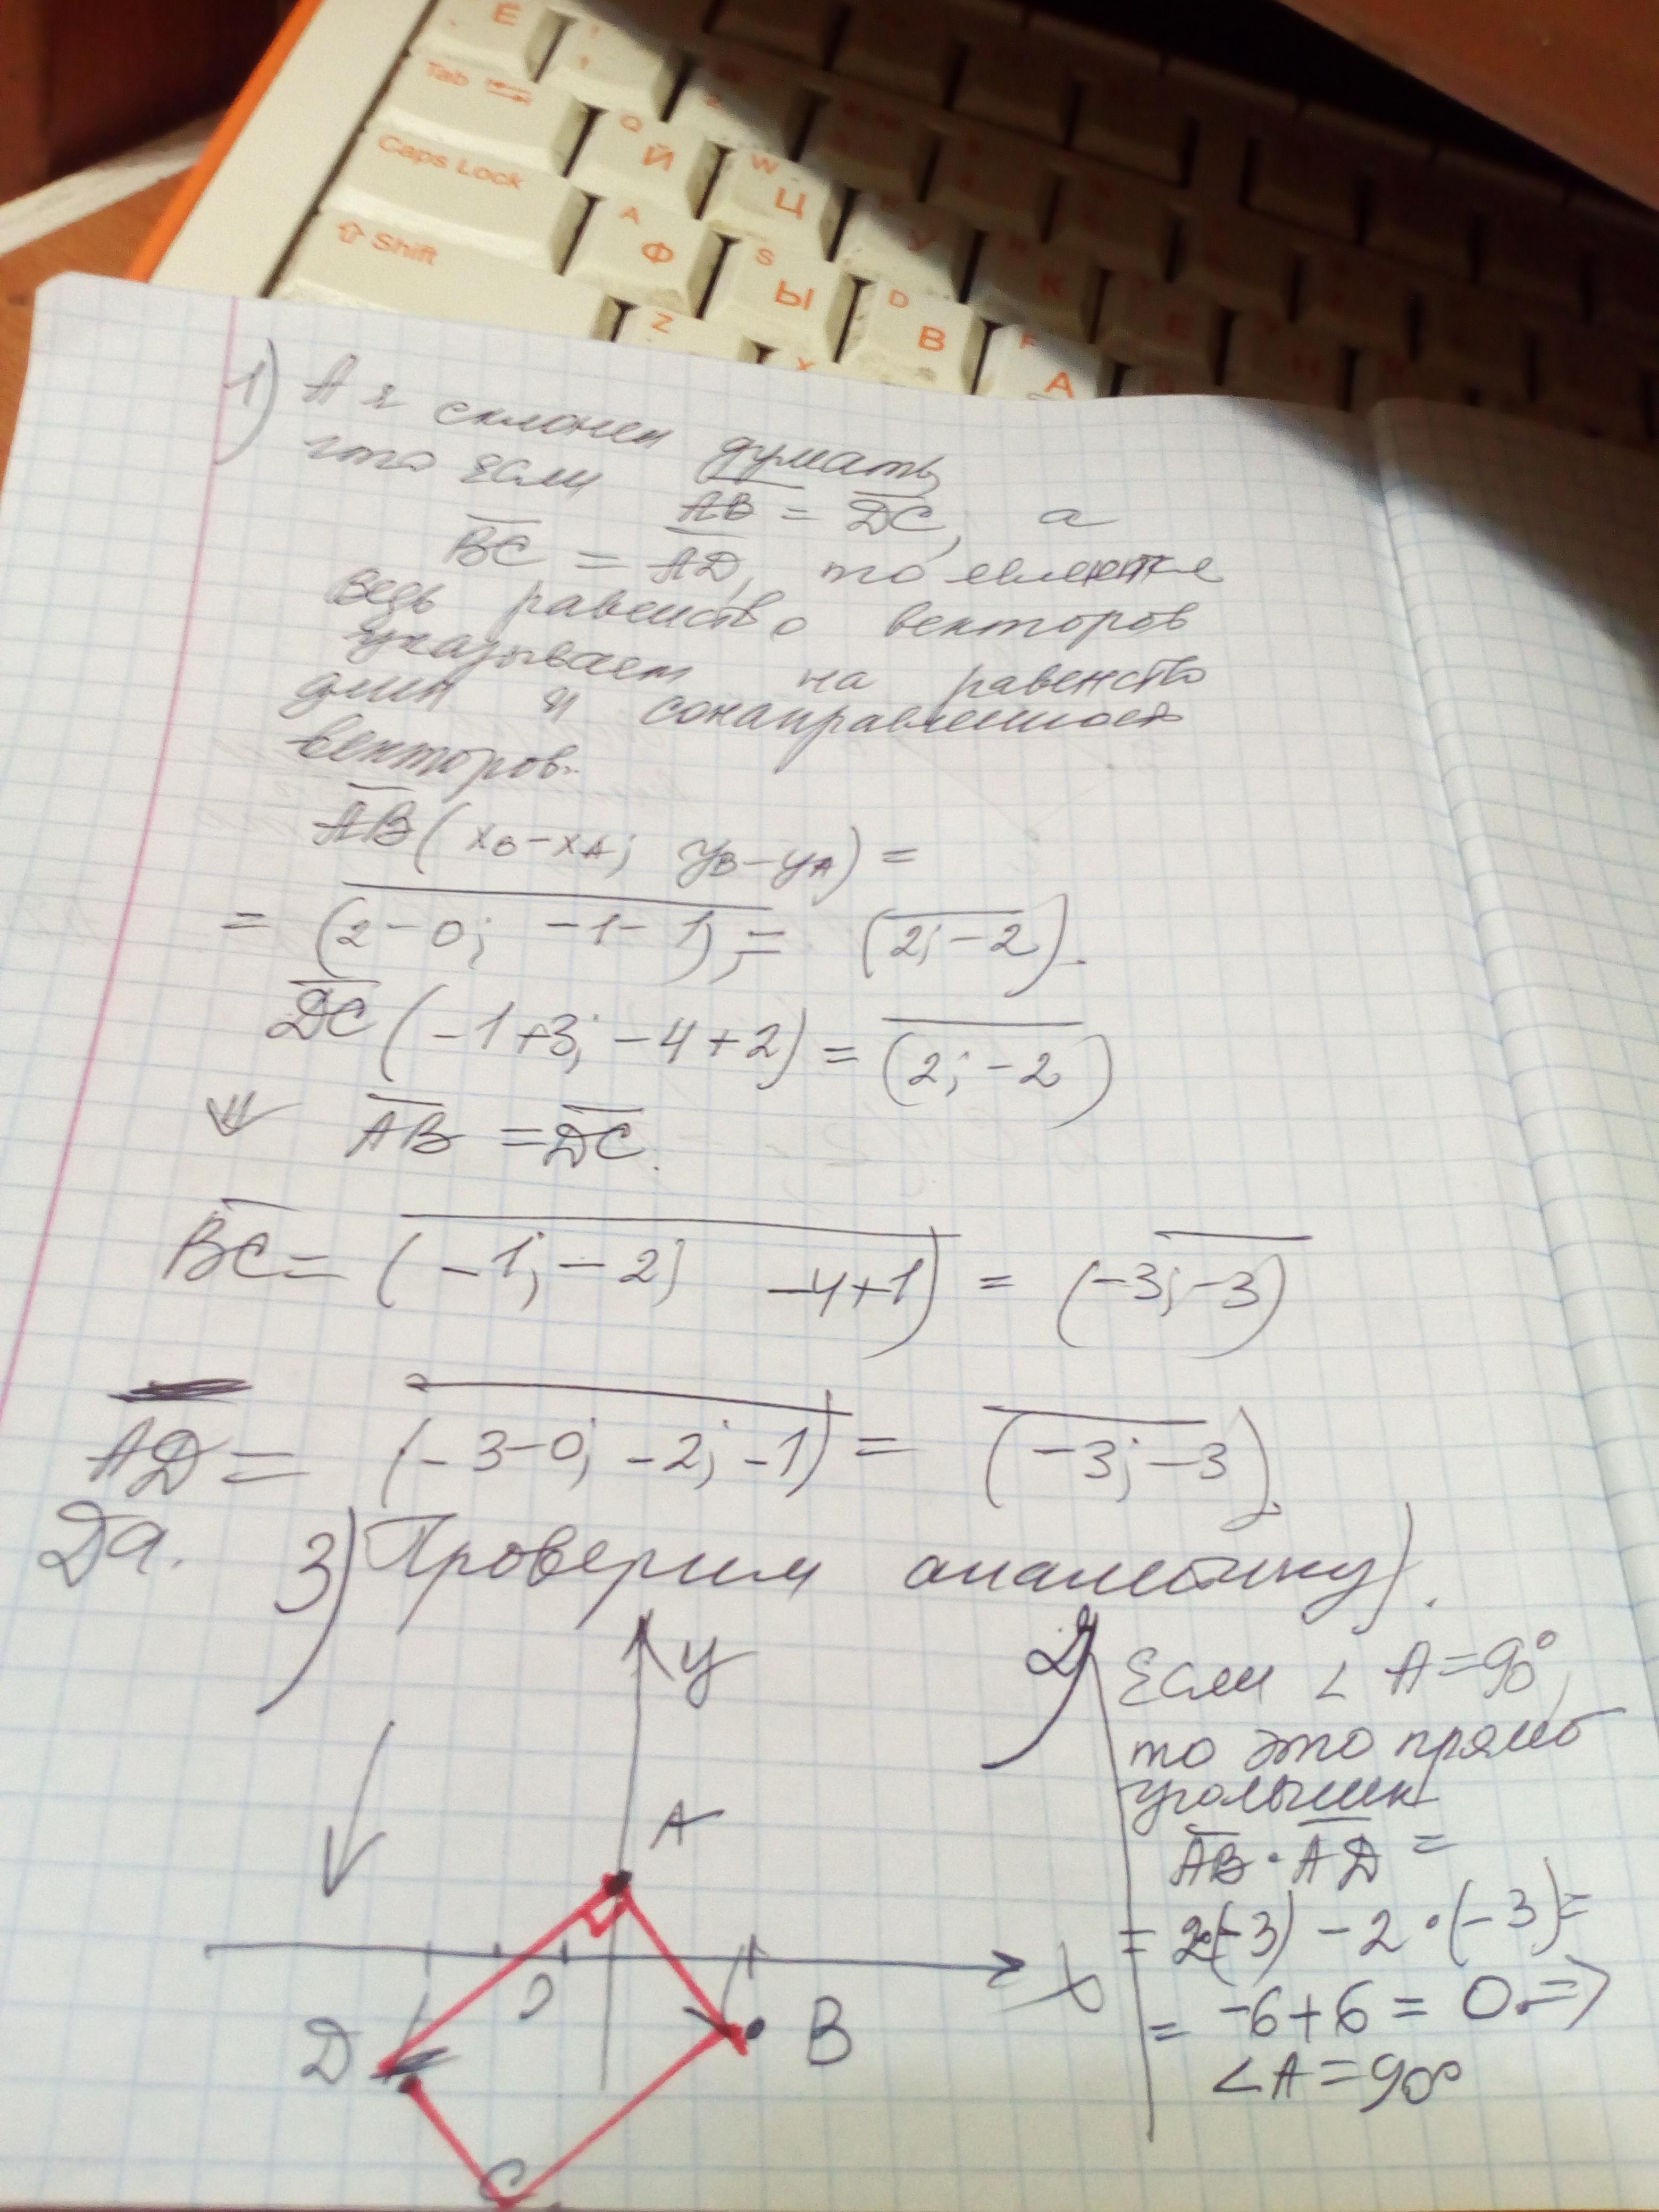 Ё
!
1
Tab
Q
Й
W
Ц
Caps Lock
A
Ф
S
Ы
D
В
F
А
Shift
Z
X
1) А я склонен думать,
что если AB = DC, а
BC = AD, то является
ведь равенство векторов
указывает на равенство
длин и сонаправленность
векторов.
AB(xB-xA; yB-yA) =
= (2-0; -1-1) = (2; -2).
DC(-1+3; -4+2) = (2; -2)
AB = DC.
BC = (-1; -2; -4+1) = (-3; -3)
AD = (-3-0; -2; -1) = (-3; -3).
Да. 3) Проверим аналитику).
y
A
D
B
C
x
2) Если ∠A=90°,
то это прямо
угольник
AB·AD =
= 2·(-3) - 2·(-3) =
= -6+6 = 0. =>
∠A=90°